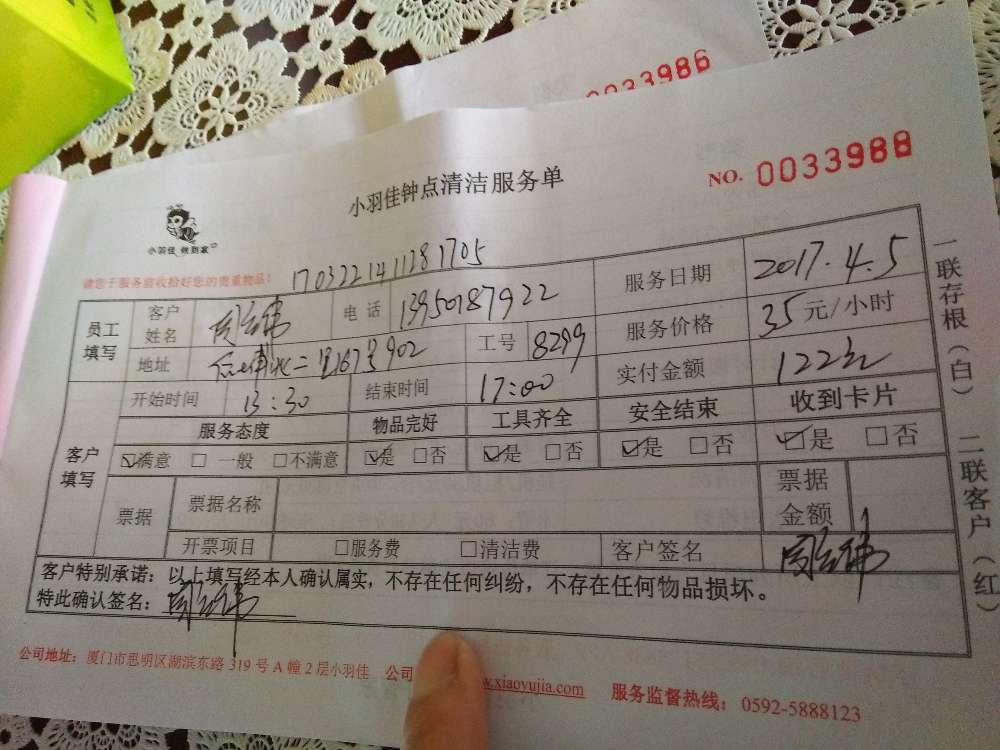 0033986
小羽佳钟点清洁服务单
NO. 0033988
小羽佳 做到家
请您于服务前收拾好您的贵重物品!
17032214111281705
员工填写 客户姓名 电话 13950187922 服务日期 2017.4.5
地址 167号902 工号 8299 服务价格 35元/小时
开始时间 13:30 结束时间 17:00 实付金额 122元
客户填写 服务态度 物品完好 工具齐全 安全结束 收到卡片
☑满意 □一般 □不满意 ☑是 □否 ☑是 □否 ☑是 □否 ☑是 □否
票据 票据名称 票据金额
开票项目 □服务费 □清洁费 客户签名
客户特别承诺:以上填写经本人确认属实,不存在任何纠纷,不存在任何物品损坏。
特此确认签名:
公司地址:厦门市思明区湖滨东路319号A幢2层小羽佳 公司 w.xiaoyujia.com 服务监督热线:0592-5888123
一联存根(白) 二联客户(红)